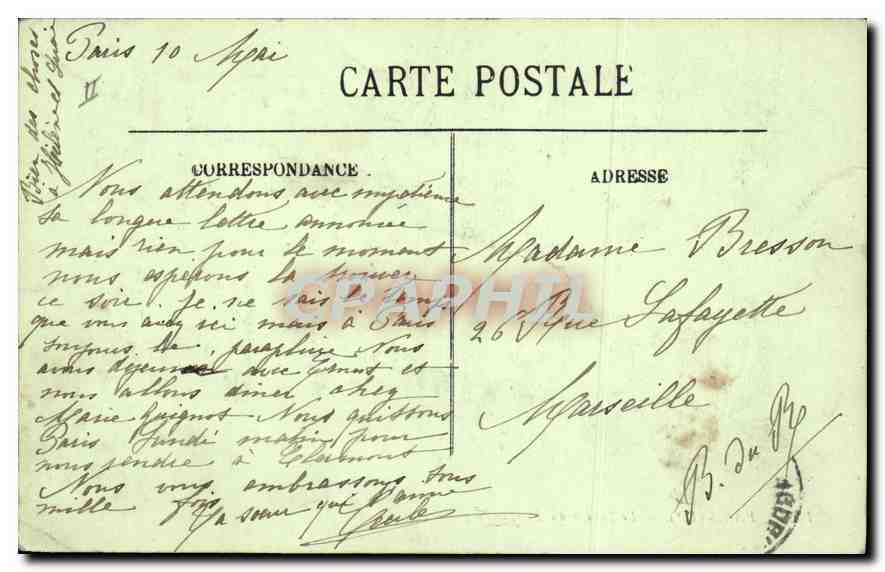 Paris 10 Mai
II
Bien des choses
à
CARTE POSTALE
CORRESPONDANCE
Nous attendons avec impatience
ta longue lettre annoncée
mais rien pour le moment
nous esperons la trouver
ce soir. Je ne sais le temps
que vous avez ici mais à Paris
toujours le parapluie Nous
avons dejeuner avec Ernest et
nous allons diner chez
Marie Nous quittons
Paris Lundi matin pour
nous rendre à Clermont
Nous vous embrassons tous
mille fois
Ta sœur qui t'aime
Cecile
ADRESSE
Madame Bresson
26 Rue Lafayette
Marseille
B. du R
CPAPHIL